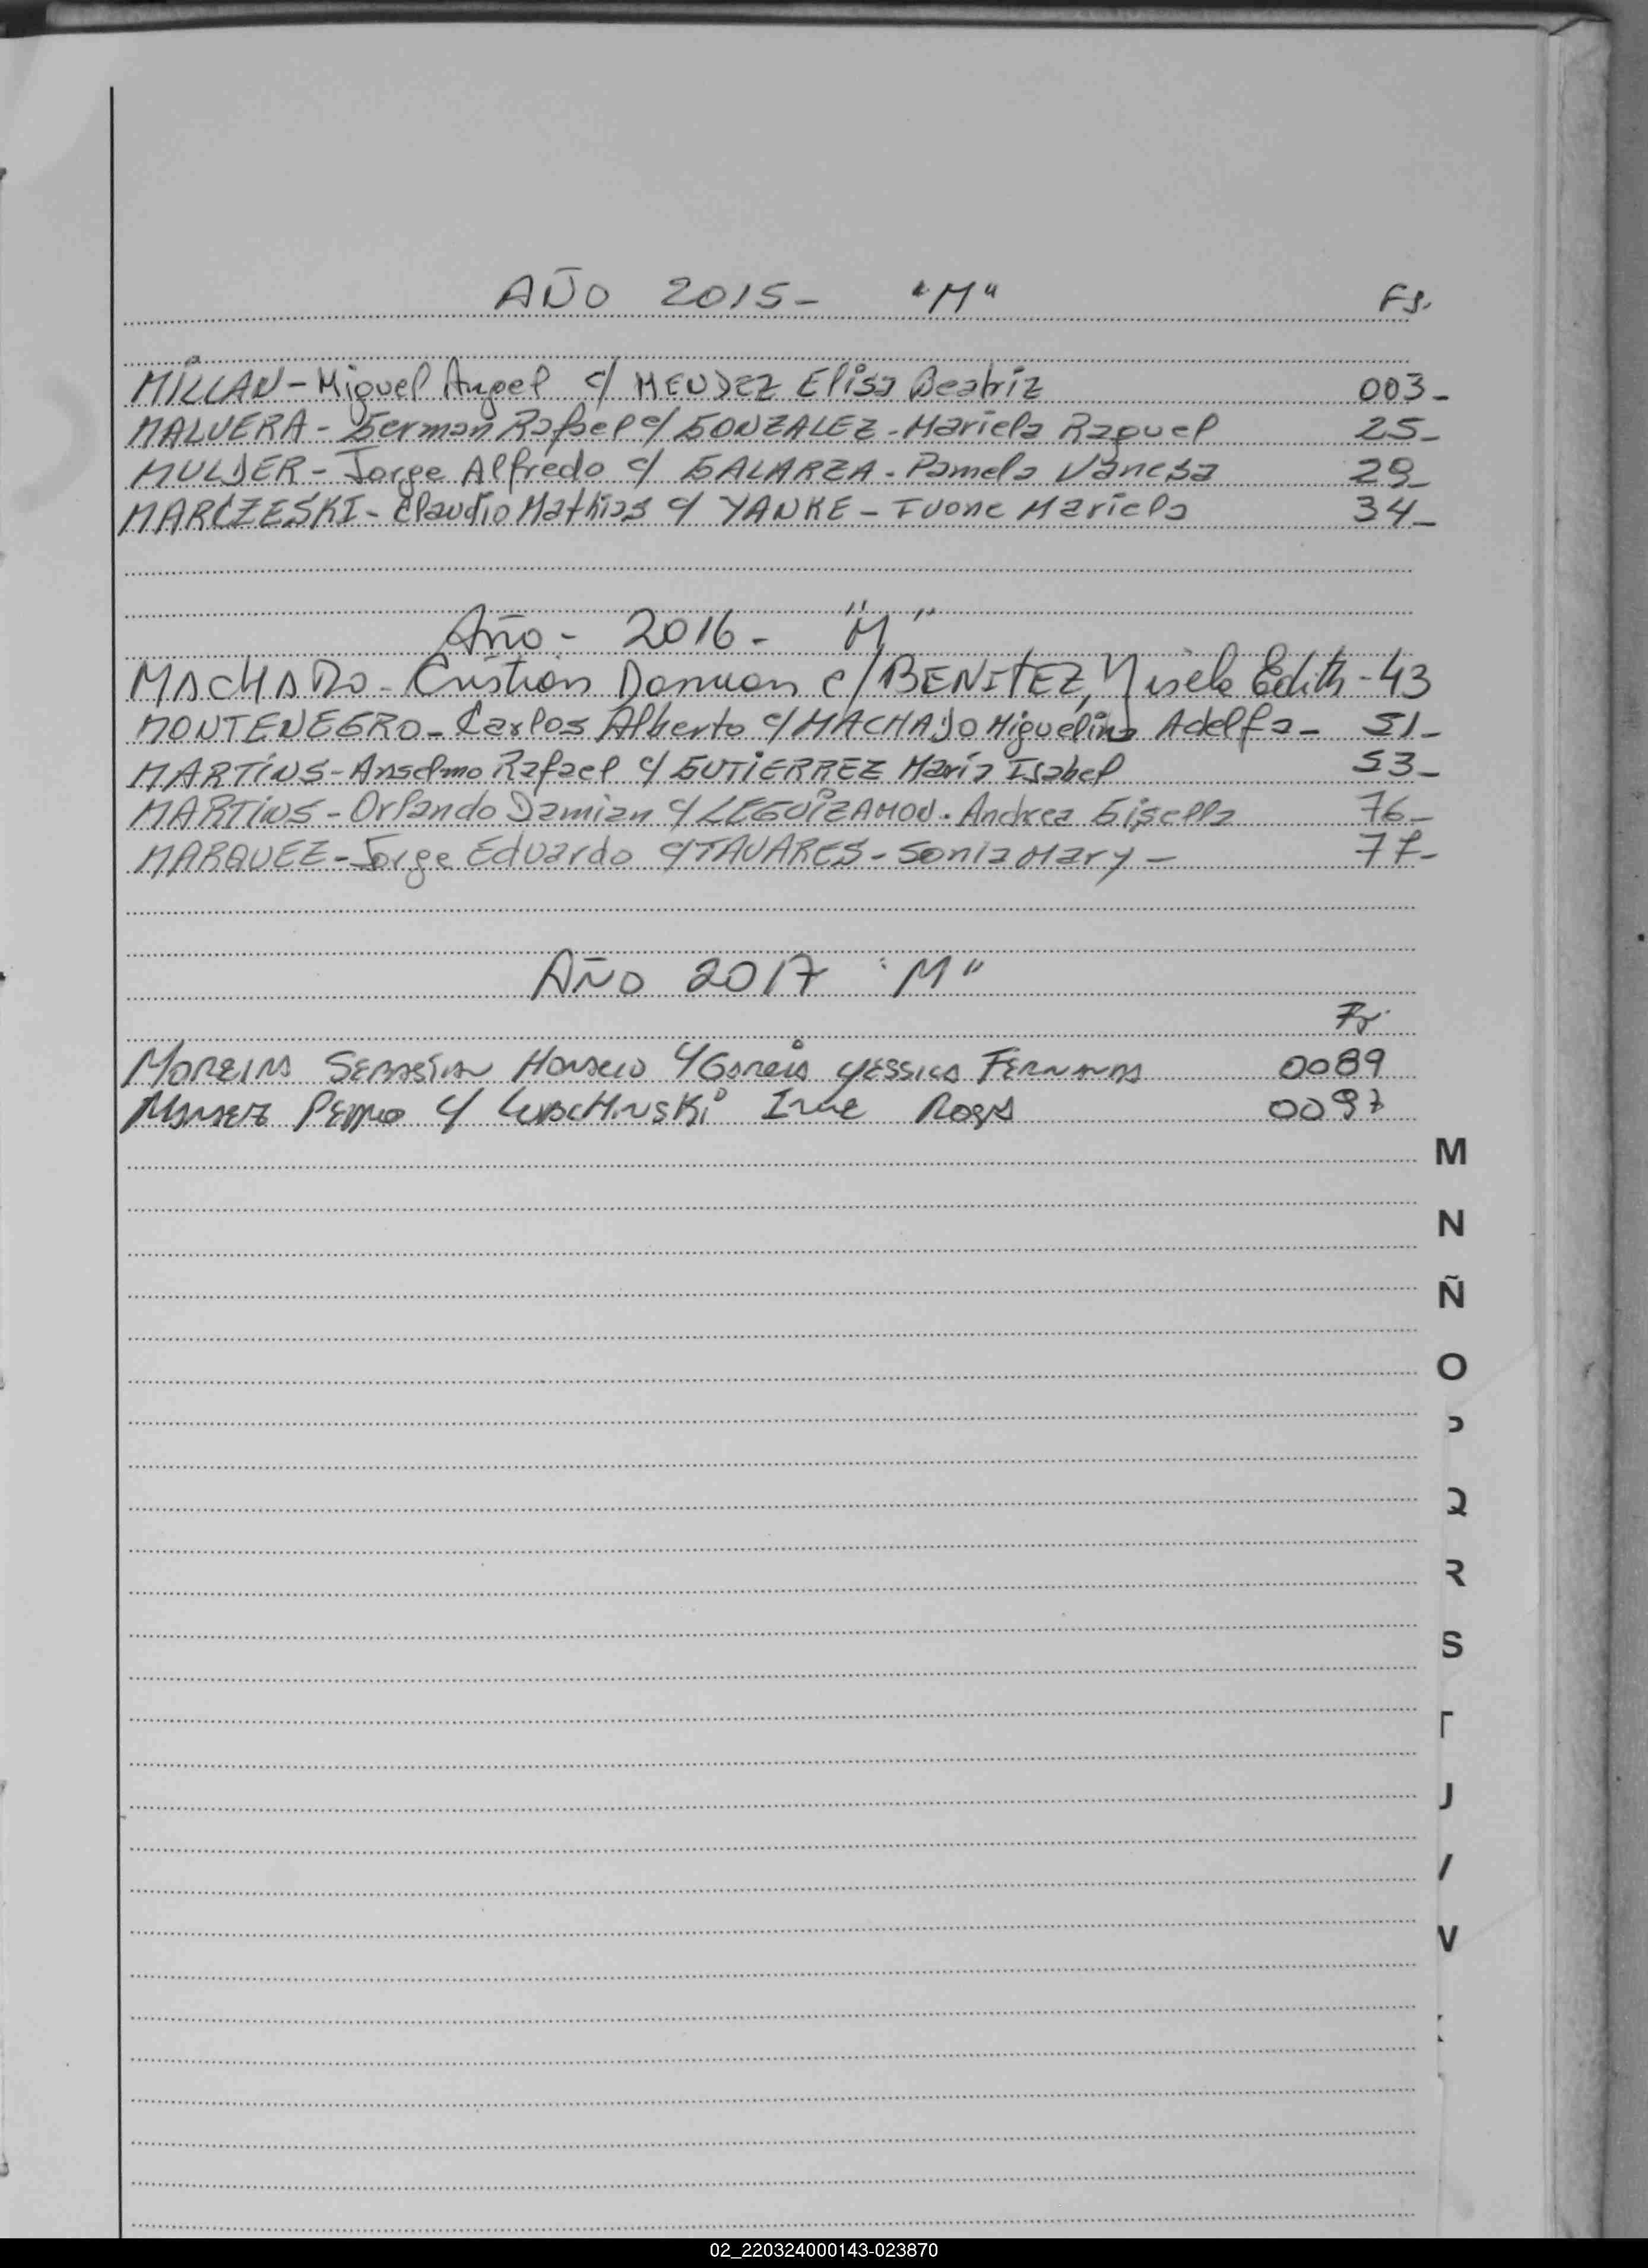 AÑO 2015- "M" Fs.
MILLAN - Miguel Angel c/ MENDEZ Elisa Beatriz 003-
MALVERA - German Rafael c/ GONZALEZ - Mariela Raquel 25-
MULDER - Jorge Alfredo c/ GALARZA - Pamela Vanesa 29-
MARCZESKI - Claudio Mathias c/ YANKE - Ivone Mariela 34-
Año - 2016 - "M"
MACHADO - Cristian Damian c/ BENITEZ, Yisela Edith - 43
MONTENEGRO - Carlos Alberto c/ MACHADO Miguelina Adelfa - 51-
MARTINS - Anselmo Rafael c/ GUTIERREZ Maria Isabel 53-
MARTINS - Orlando Damian c/ LEGUIZAMON - Andrea Gisella 76-
MARQUEZ - Jorge Eduardo c/ TAVARES - Sonia Mary - 77-
AÑO 2017 "M"
Fs.
MOREIRA SEBASTIAN HORACIO c/ YESSICA FERNANDA 0089
PEDRO c/ ROSA 0097
M
N
Ñ
O
Q
R
S
T
J
V
02_220324000143-023870